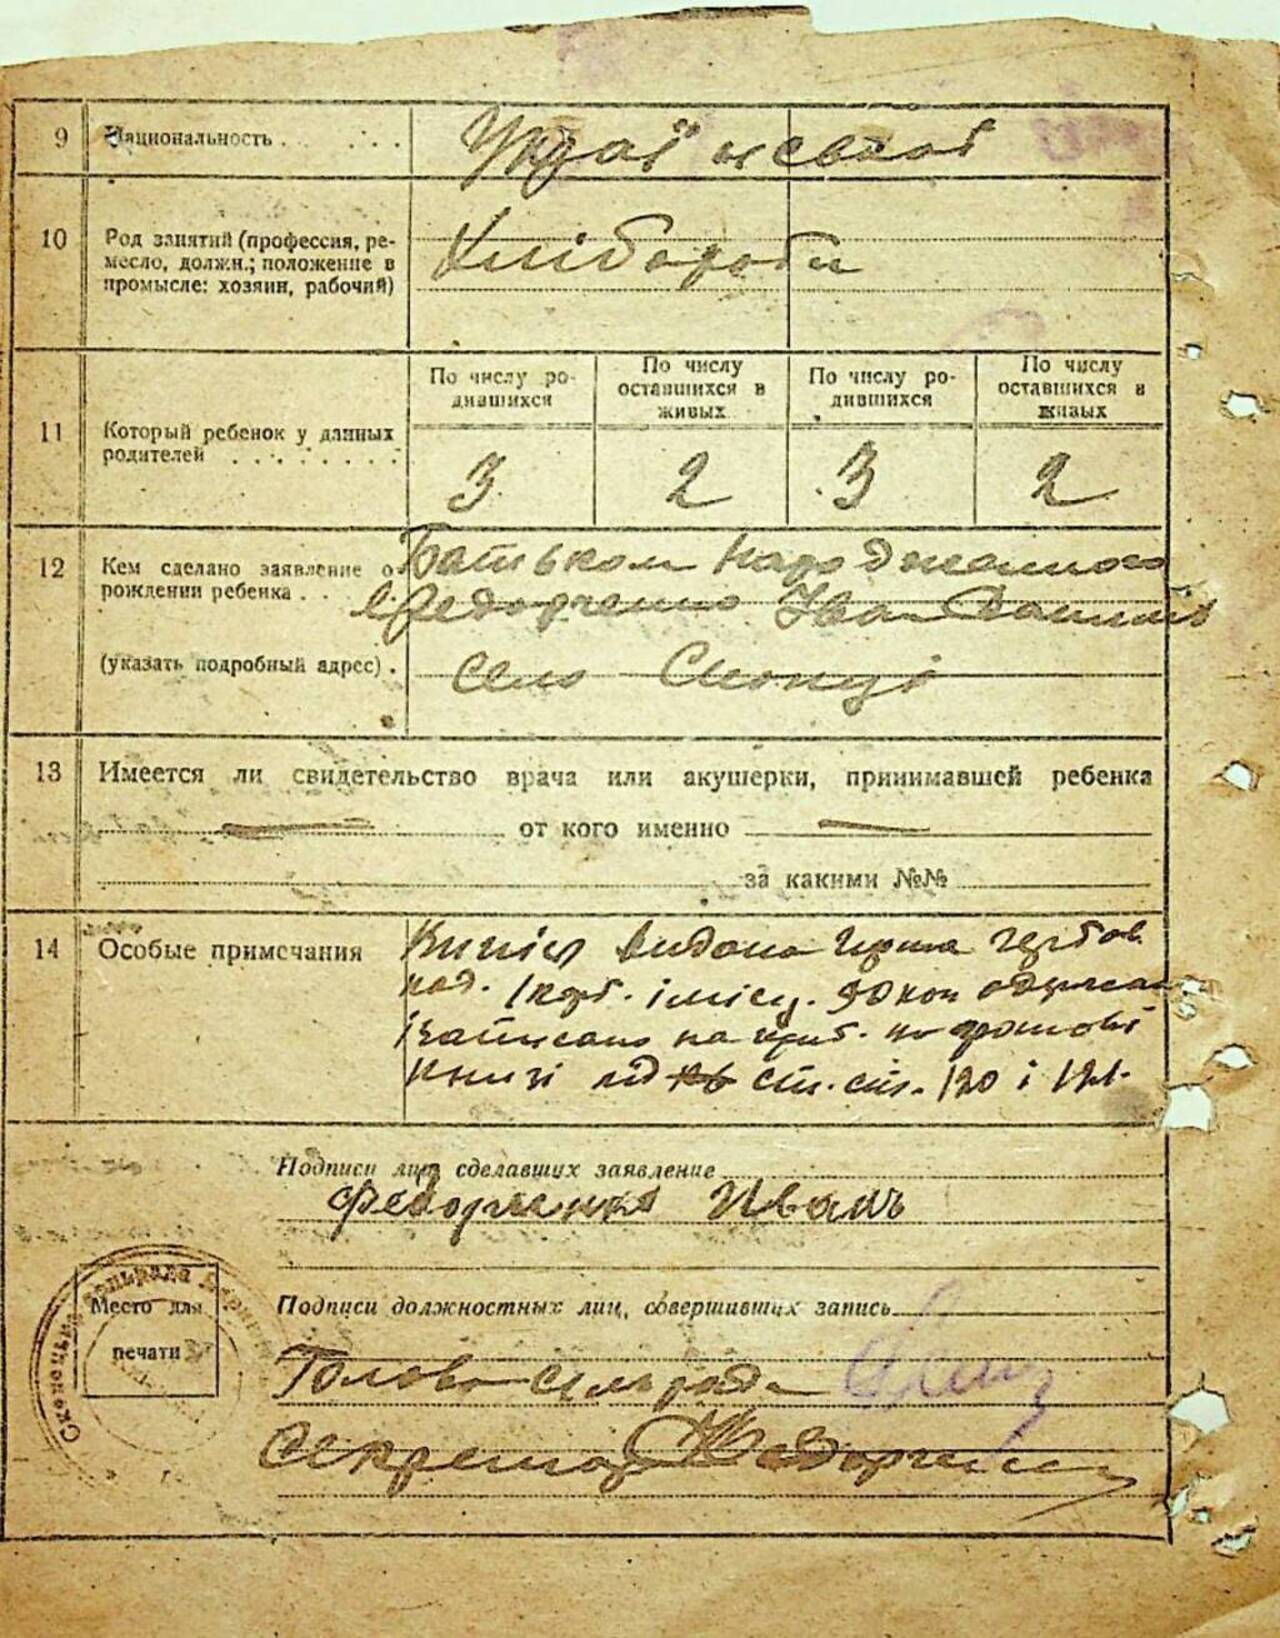 9 Национальность . . . . . . Української
10 Род занятий (профессия, ре-
месло, должн.; положение в
промысле: хозяин, рабочий)
Хлібороби
11 Который ребенок у данных
родителей . . . . . . . .
По числу ро-
дившихся
По числу
оставшихся в
живых
По числу ро-
дившихся
По числу
оставшихся в
живых
3 2 3 2
12 Кем сделано заявление о
рождении ребенка . . .
(указать подробный адрес) .
Батьком народженного
Федорченко Іван
село Сконці
13 Имеется ли свидетельство врача или акушерки, принимавшей ребенка
от кого именно
за какими №№
14 Особые примечания
видана гербов.
1 карб. і місц. 90 коп
Записано на по грошові
книзі під ст. ст. 120 і 121.
Подписи лиц сделавших заявление
Федорченко Иванъ
Место для
печати
Подписи должностных лиц, совершивших запись
Голова сільради
Секретар